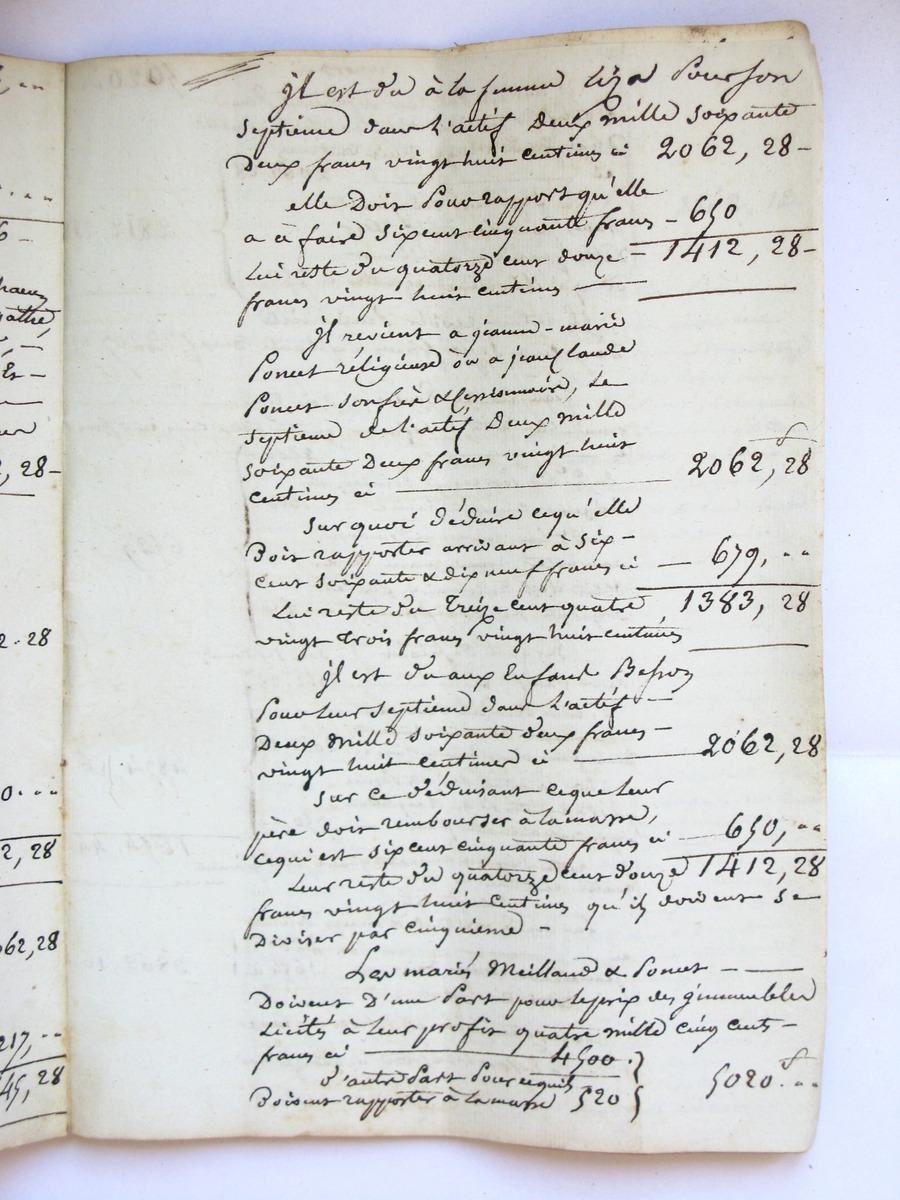 il est dû à la femme Liza Pour son
septieme dans l'actif Deux mille soixante
Deux francs vingt huit centimes ci 2062, 28 -
elle Doit Pour rapport qu'elle
a à faire six cent cinquante francs - 650
Lui reste dû quatorze cent douze - 1412, 28 -
francs vingt huit centimes
il revient a jeanne-marie
Poncet réligieuse ou a jean Claude
Poncet son frère & Cessionnaire, Le
septieme de l'actif Deux mille
soixante Deux francs vingt huit
centimes ci 2062, 28
sur quoi déduire ce qu'elle
Doit rapporter arrivant à six -
cent soixante & dix neuf francs ci - 679, ..
Lui reste du Treize cent quatre 1383, 28
vingt trois francs vingt huit centimes
il est du aux Enfans Besson
Pour leur septieme dans L'actif -
Deux mille soixante deux francs -
vingt huit centimes ci 2062, 28
sur ce déduisant ce que leur
père doit rembourser à la masse,
ce qui est six cent cinquante francs ci 650, ..
Leur reste du quatorze cent douze 1412, 28
francs vingt huit centimes qu'ils doivent se
Diviser par cinquieme -
Les mariés Meilland & Poncet -
Doivent D'une Part pour le prix des immeubles
Licités à leur profit quatre mille cinq cents -
francs ci 4500
d'autre Part Pour ce qu'ils 5020 ..
Doivent rapporter à la masse 520